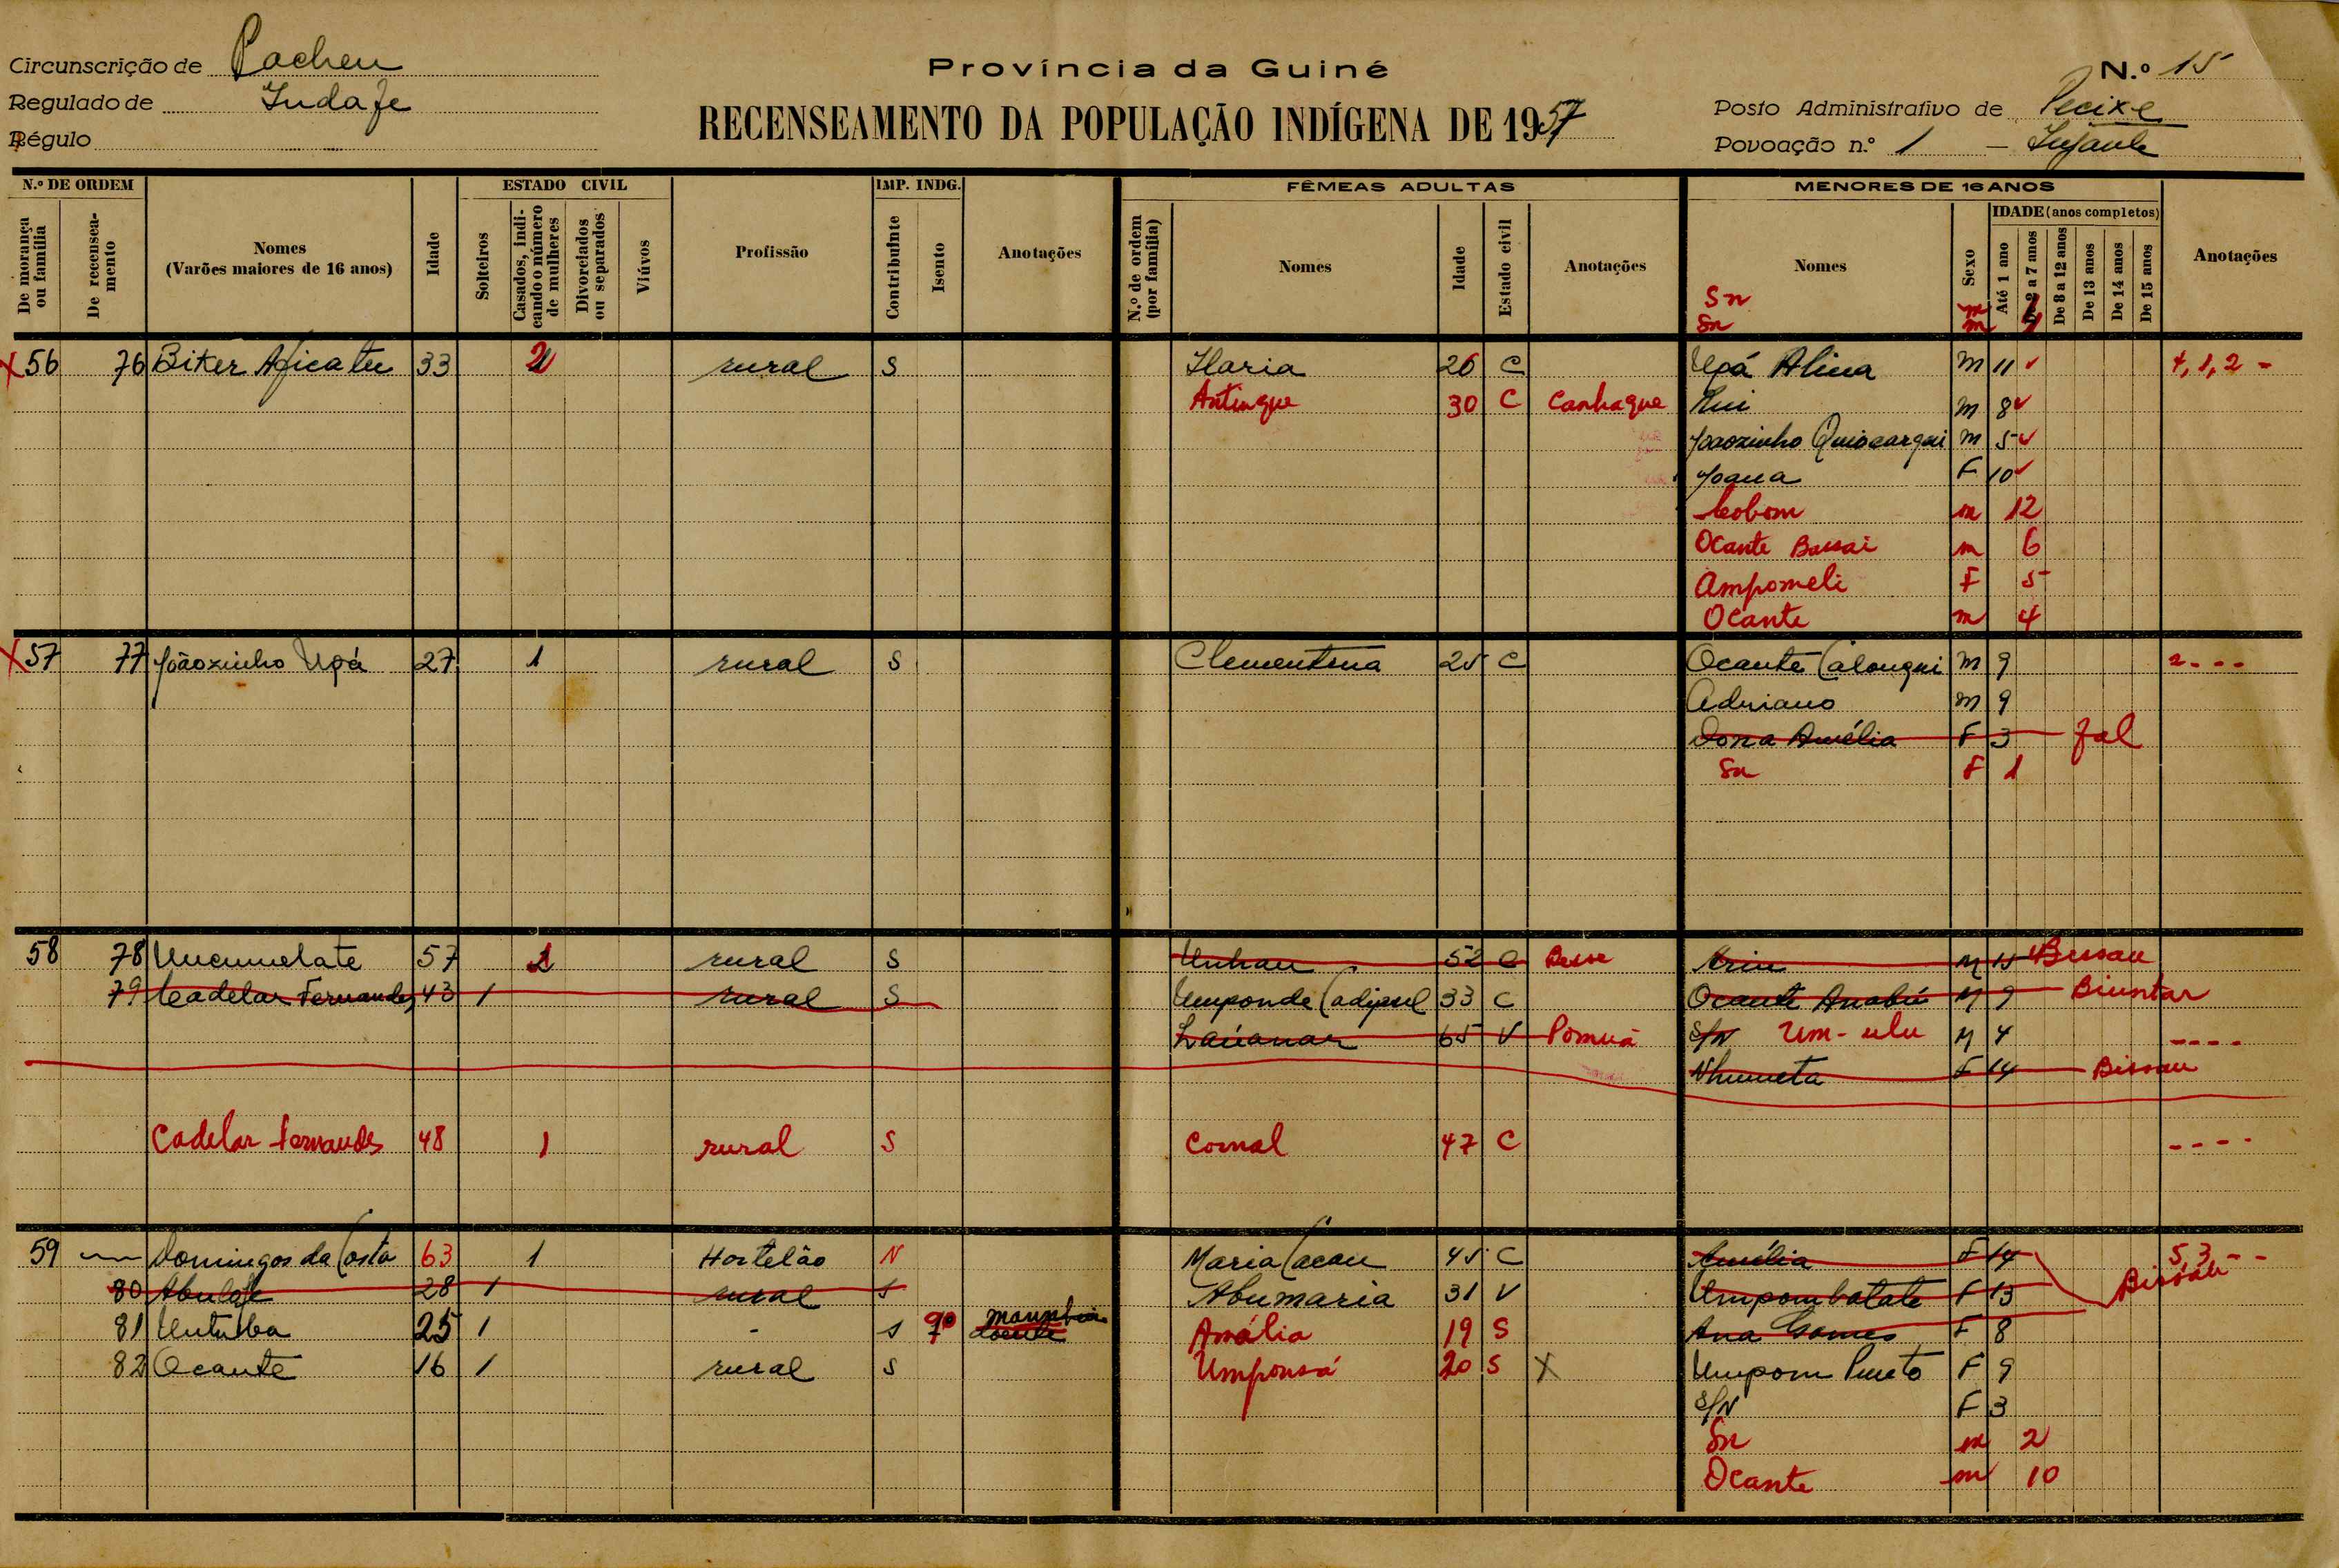 Circunscrição de Cacheu
Regulado de Indafe
Régulo
Província da Guiné
RECENSEAMENTO DA POPULAÇÃO INDÍGENA DE 1957
N.º 15
Posto Administrativo de Pecixe
Povoação n.º 1 –
N.º DE ORDEM
De morança ou família
De recenseamento
Nomes
(Varões maiores de 16 anos)
Idade
ESTADO CIVIL
Solteiros
Casados, indicando o número de mulheres
Divorciados ou separados
Viúvos
Profissão
IMP. INDG.
Contribuinte
Isento
Anotações
FÊMEAS ADULTAS
N.º de ordem (por família)
Nomes
Idade
Estado civil
Anotações
MENORES DE 16 ANOS
Nomes
Sexo
IDADE (anos completos)
Até 1 ano
De 2 a 7 anos
De 8 a 12 anos
De 13 anos
De 14 anos
De 15 anos
Anotações
Sn m
Sn m
X 56 76 Biker Aficatu 33 2 rural S Ilaria 26 C Upá Alina M 11 4, 1, 2 -
Antingue 30 C Canhaque Rui M 8
Joãozinho M 5
Joana F 10
Cobom m 12
Ocante Bassai m 6
Ampomeli F 5
Ocante m 4
X 57 77 Joãozinho Upá 27 1 rural S Clementina 25 C Ocante Calouqui M 9 2 - - -
Adriano M 9
Dona Amélia F 3 fal
Sn F 1
58 78 57 rural S Unhau 52 C M 15 Bissau
79 Cadelar Fernandes 43 1 rural S Umponde 33 C Ocante Anabú M 9 Biuntar
65 V Pomuá S/N Um-ulu M 4 - - - -
Nhumeta F 14 Bissau
Cadelar Fernandes 48 1 rural S Cornal 47 C - - - -
59 Domingos da Costa 63 1 Hortelão N Maria Cacau 45 C Amélia F 14 5, 3 - -
80 28 1 rural S Abumaria 31 V Umpombatate F 13 Bissau
81 Untulba 25 1 - S 9º doente Amália 19 S Ana Gomes F 8
82 Ocante 16 1 rural S Umponsá 20 S X Umpom Pinto F 9
S/N F 3
Sn m 2
Ocante m 10